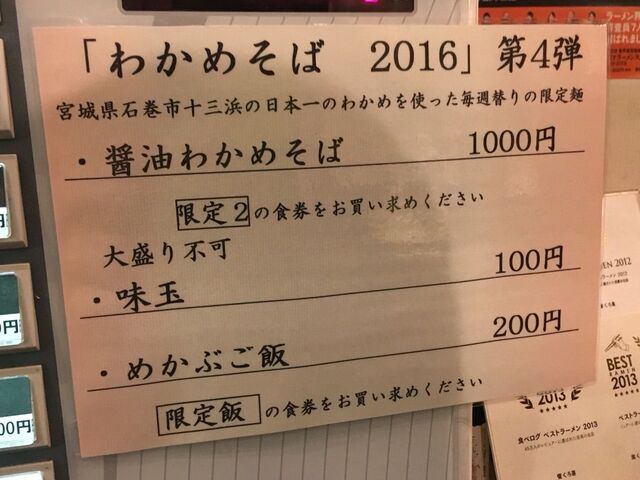 「わかめそば 2016」第4弾
宮城県石巻市十三浜の日本一のわかめを使った毎週替りの限定麺
・醤油わかめそば 1000円
限定2の食券をお買い求めください
大盛り不可
・味玉 100円
・めかぶご飯 200円
限定飯 の食券をお買い求めください
円
0円
00円
2012
BEST
RAMEN
2013
2013
食べログ ベストラーメン 2013